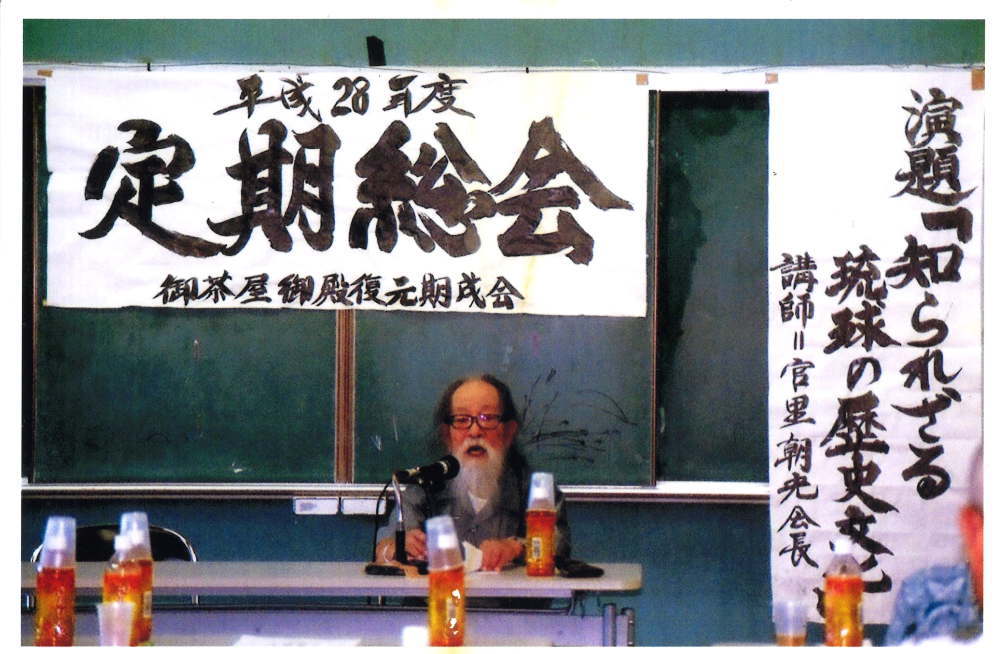 平成28年度
定期総会
御茶屋御殿復元期成会
演題「知られざる
琉球の歴史文化」
講師=宮里朝光会長